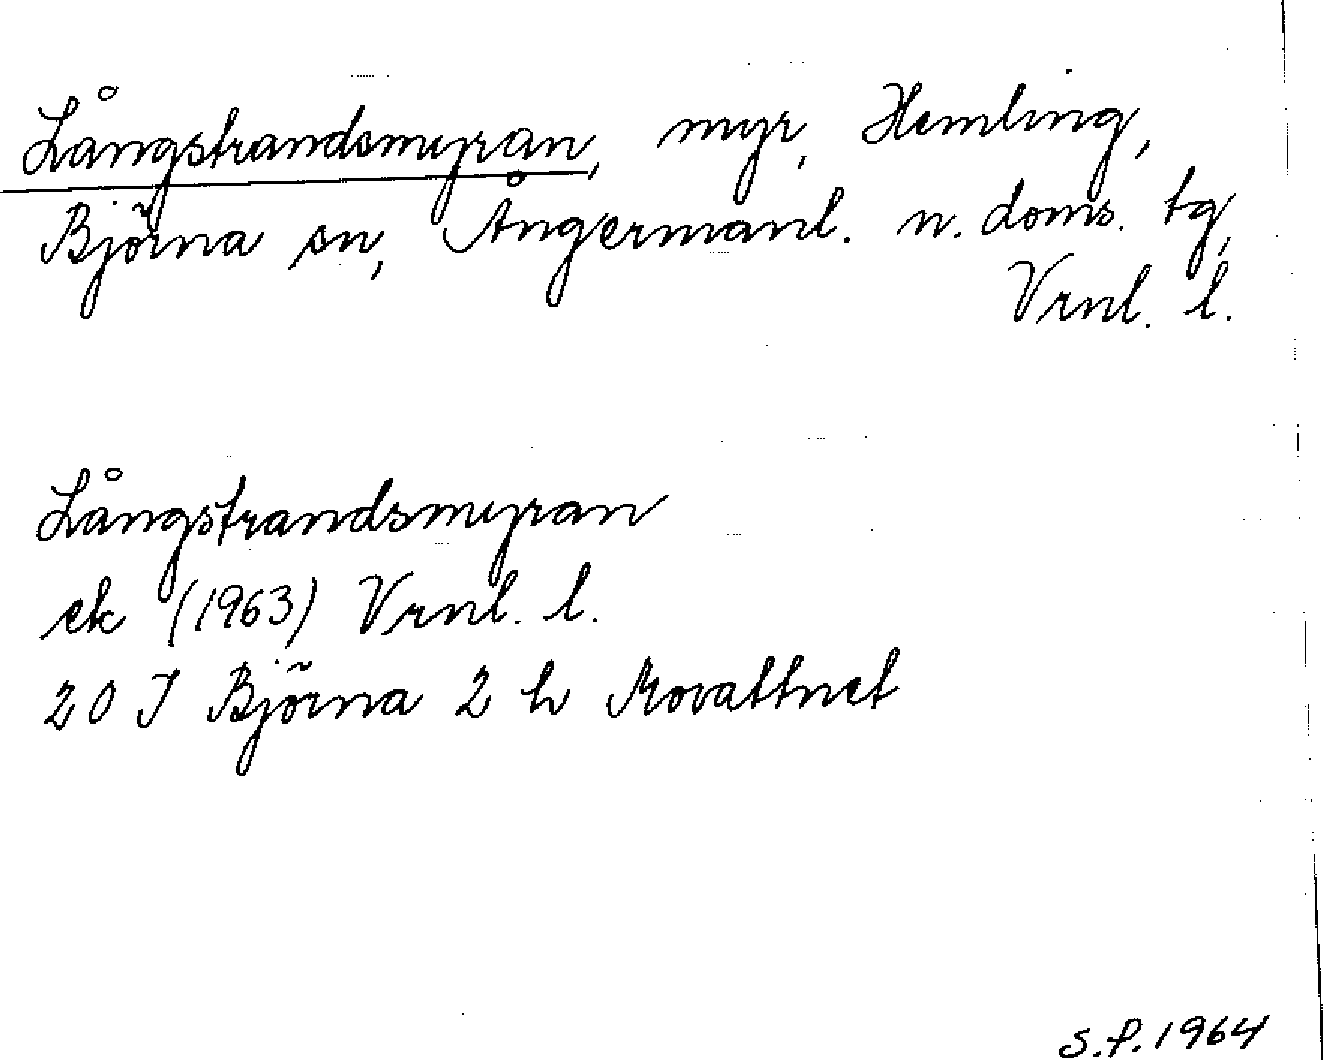 Långstrandsmyran, myr, Hemling,
Björna sn, Ångermanl. n. doms. tg,
Vrnl. l.
Långstrandsmyran
ek (1963) Vrnl. l.
20 J Björna 2 h Movattnet
S.P. 1964